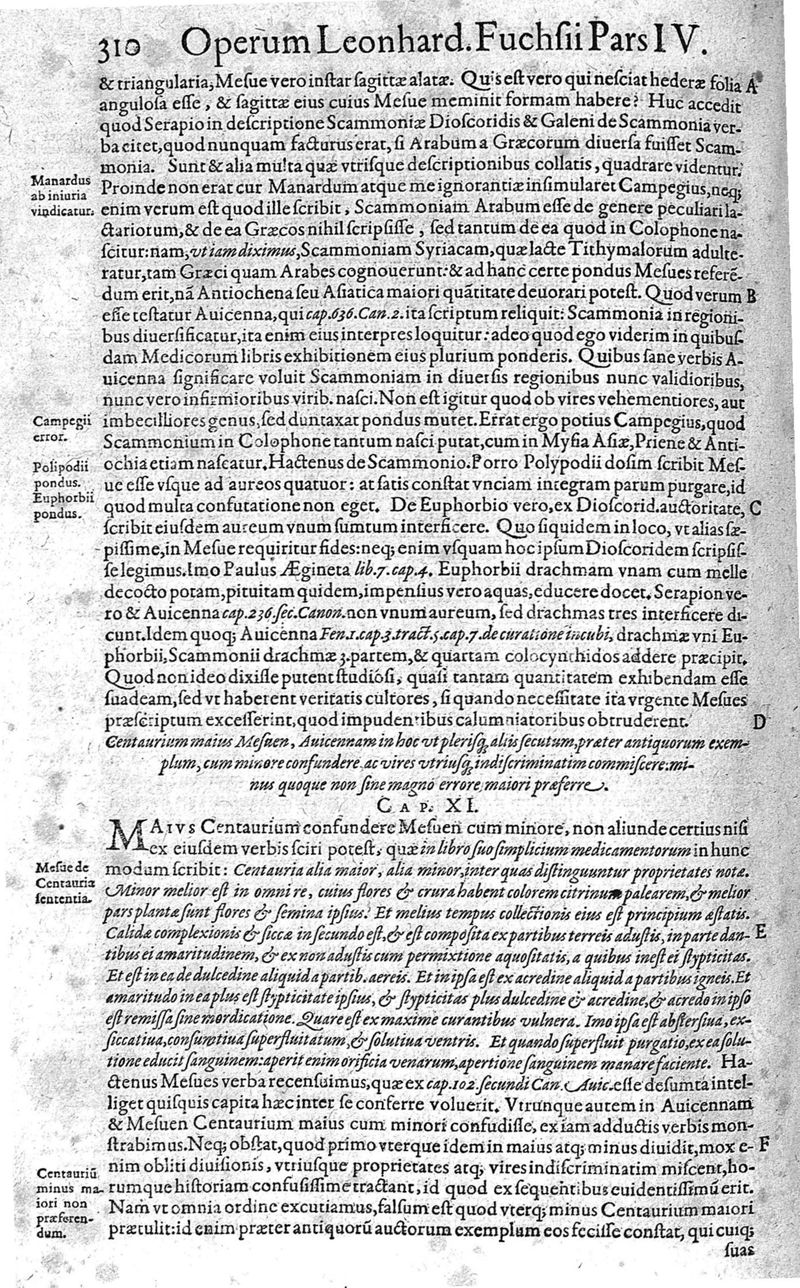 310 Operum Leonhard. Fuchsii Pars IV.
& triangularia, Mesue vero instar sagittæ alatæ. Quis est vero qui nesciat hederæ folia A
angulosa esse, & sagittæ eius cuius Mesue meminit formam habere? Huc accedit
quod Serapio in descriptione Scammoniæ Dioscoridis & Galeni de Scammonia ver-
ba citet, quod nunquam facturus erat, si Arabum a Græcorum diuersa fuisset Scam-
monia. Sunt & alia multa quæ vtrisque descriptionibus collatis, quadrare videntur.
Manardus
ab iniuria
vindicatur.
Proinde non erat cur Manardum atque me ignorantiæ insimularet Campegius, neq;
enim verum est quod ille scribit, Scammoniam Arabum esse de genere peculiari la-
ctariorum, & de ea Græcos nihil scripsisse, sed tantum de ea quod in Colophone na-
scitur: nam, vt iam diximus, Scammoniam Syriacam, quæ lacte Tithymalorum adulte-
ratur, tam Græci quam Arabes cognouerunt: & ad hanc certe pondus Mesues referē-
dum erit, nā Antiochena seu Asiatica maiori quātitate deuorari potest. Quod verum B
esse testatur Auicenna, qui cap. 636. Can. 2. ita scriptum reliquit: Scammonia in regioni-
bus diuersificatur, ita enim eius interpres loquitur: adeo quod ego viderim in quibus-
dam Medicorum libris exhibitionem eius plurium ponderis. Quibus sane verbis A-
uicenna significare voluit Scammoniam in diuersis regionibus nunc validioribus,
nunc vero infirmioribus virib. nasci. Non est igitur quod ob vires vehementiores, aut
Campegii
error.
imbecilliores genus, sed duntaxat pondus mutet. Errat ergo potius Campegius, quod
Scammonium in Colophone tantum nasci putat, cum in Mysia Asiæ, Priene & Anti-
Polipodii
pondus.
Euphorbii
pondus.
ochia etiam nascatur. Hactenus de Scammonio. Porro Polypodii dosim scribit Mes-
ue esse vsque ad aureos quatuor: at satis constat vnciam integram parum purgare, id
quod multa confutatione non eget. De Euphorbio vero, ex Dioscorid. auctoritate, C
scribit eiusdem aureum vnum sumtum interficere. Quo siquidem in loco, vt alias sæ-
pissime, in Mesue requiritur fides: neq; enim vsquam hoc ipsum Dioscoridem scripsis-
se legimus. Imo Paulus Ægineta lib. 7. cap. 4. Euphorbii drachmam vnam cum melle
decocto potam, pituitam quidem, impensius vero aquas, educere docet. Serapion ve-
ro & Auicenna cap. 236. sec. Canon. non vnum aureum, sed drachmas tres interficere di-
cunt. Idem quoq; Auicenna Fen. 1. cap. 3. tract. 5. cap. 7. de curatione incubi, drachmæ vni Eu-
phorbii, Scammonii drachmæ 3. partem, & quartam colocynthidos addere præcipit.
Quod non ideo dixisse putent studiosi, quasi tantam quantitatem exhibendam esse
suadeam, sed vt haberent veritatis cultores, si quando necessitate ita vrgente Mesues
præscriptum excesserint, quod impudentibus calumniatoribus obtruderent. D
Centaurium maius Mesuen, Auicennam in hoc vt plerisq, aliis secutum, præter antiquorum exem-
plum, cum minore confundere, ac vires vtriusq, indiscriminatim commiscere: mi-
nus quoque non sine magno errore, maiori præferre.
CAP. XI.
MAIVS Centaurium confundere Mesuen cum minore, non aliunde certius nisi
ex eiusdem verbis sciri potest, quæ in libro suo simplicium medicamentorum in hunc
Mesue de
Centauria
sententia.
modum scribit: Centauria alia maior, alia minor, inter quas distinguuntur proprietates notæ.
Minor melior est in omni re, cuius flores & crura habent colorem citrinum palearem, & melior
pars plantæ sunt flores & semina ipsius. Et melius tempus collectionis eius est principium æstatis.
Calidæ complexionis & siccæ in secundo est, & est composita ex partibus terreis adustis, in parte dan- E
tibus ei amaritudinem, & ex non adustis cum permixtione aquositatis, a quibus inest ei stypticitas.
Et est in ea de dulcedine aliquid a partib. aereis. Et in ipsa est ex acredine aliquid a partibus igneis. Et
amaritudo in ea plus est stypticitate ipsius, & stypticitas plus dulcedine & acredine, & acredo in ipso
est remissa sine mordicatione. Quare est ex maxime curantibus vulnera. Imo ipsa est abstersiua, ex-
siccatiua, consumtiua superfluitatum, & solutiua ventris. Et quando superfluit purgatio, ex ea solu-
tione educit sanguinem: aperit enim orificia venarum, apertione sanguinem manare faciente. Ha-
ctenus Mesues verba recensuimus, quæ ex cap. 102. secundi Can. Auic. esse desumta intel-
liget quisquis capita hæc inter se conferre voluerit. Vtrunque autem in Auicennam
& Mesuen Centaurium maius cum minori confudisse, ex iam adductis verbis mon-
strabimus. Neq; obstat, quod primo vterque idem in maius atq; minus diuidit, mox e- F
nim obliti diuisionis, vtriusque proprietates atq; vires indiscriminatim miscent, ho-
Centauriū
minus ma-
iori non
præferen-
dum.
rumque historiam confusissime tractant, id quod ex sequentibus euidentissimū erit.
Nam vt omnia ordine excutiamus, falsum est quod vterq; minus Centaurium maiori
prætulit: id enim præter antiquorū auctorum exemplum eos fecisse constat, qui cuiq;
suas